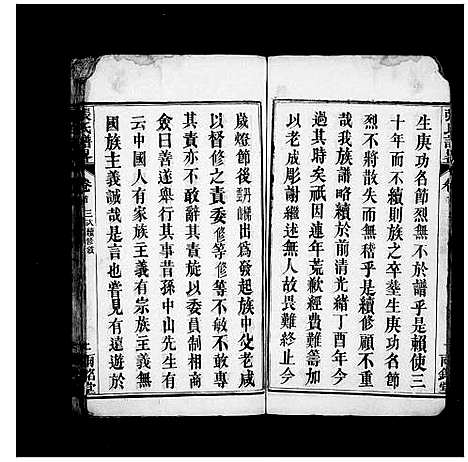 生庚功名節烈無不於譜乎是賴使三
十年而不續則族之卒塟生庚功名節
烈不將散失而無稽乎是續修顧不重
哉我族譜略續於前清光緒丁酉年今
過其時矣祇因連年荒歉經費難籌加
以老成彫謝繼述無人故畏難終止今
歲燈節後 出為發起族中父老咸
以督修之責委修等修等不敏不敢專
其責亦不敢辭其責旋以委員制相商
僉曰善遂舉行其事昔孫中山先生有
云中國人有家族主義有宗族主義無
國族主義誠哉是言也嘗見有遠遊於
張氏譜
卷首
三試續修敘